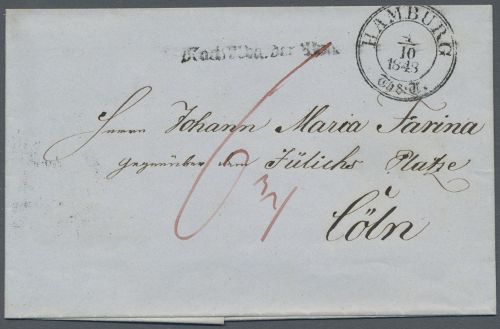 Nach Abg. der Post
HAMBURG
10
1848
Th&T.
6
Herrn Johann Maria Farina
gegenüber dem Jülichs Platze
Cöln